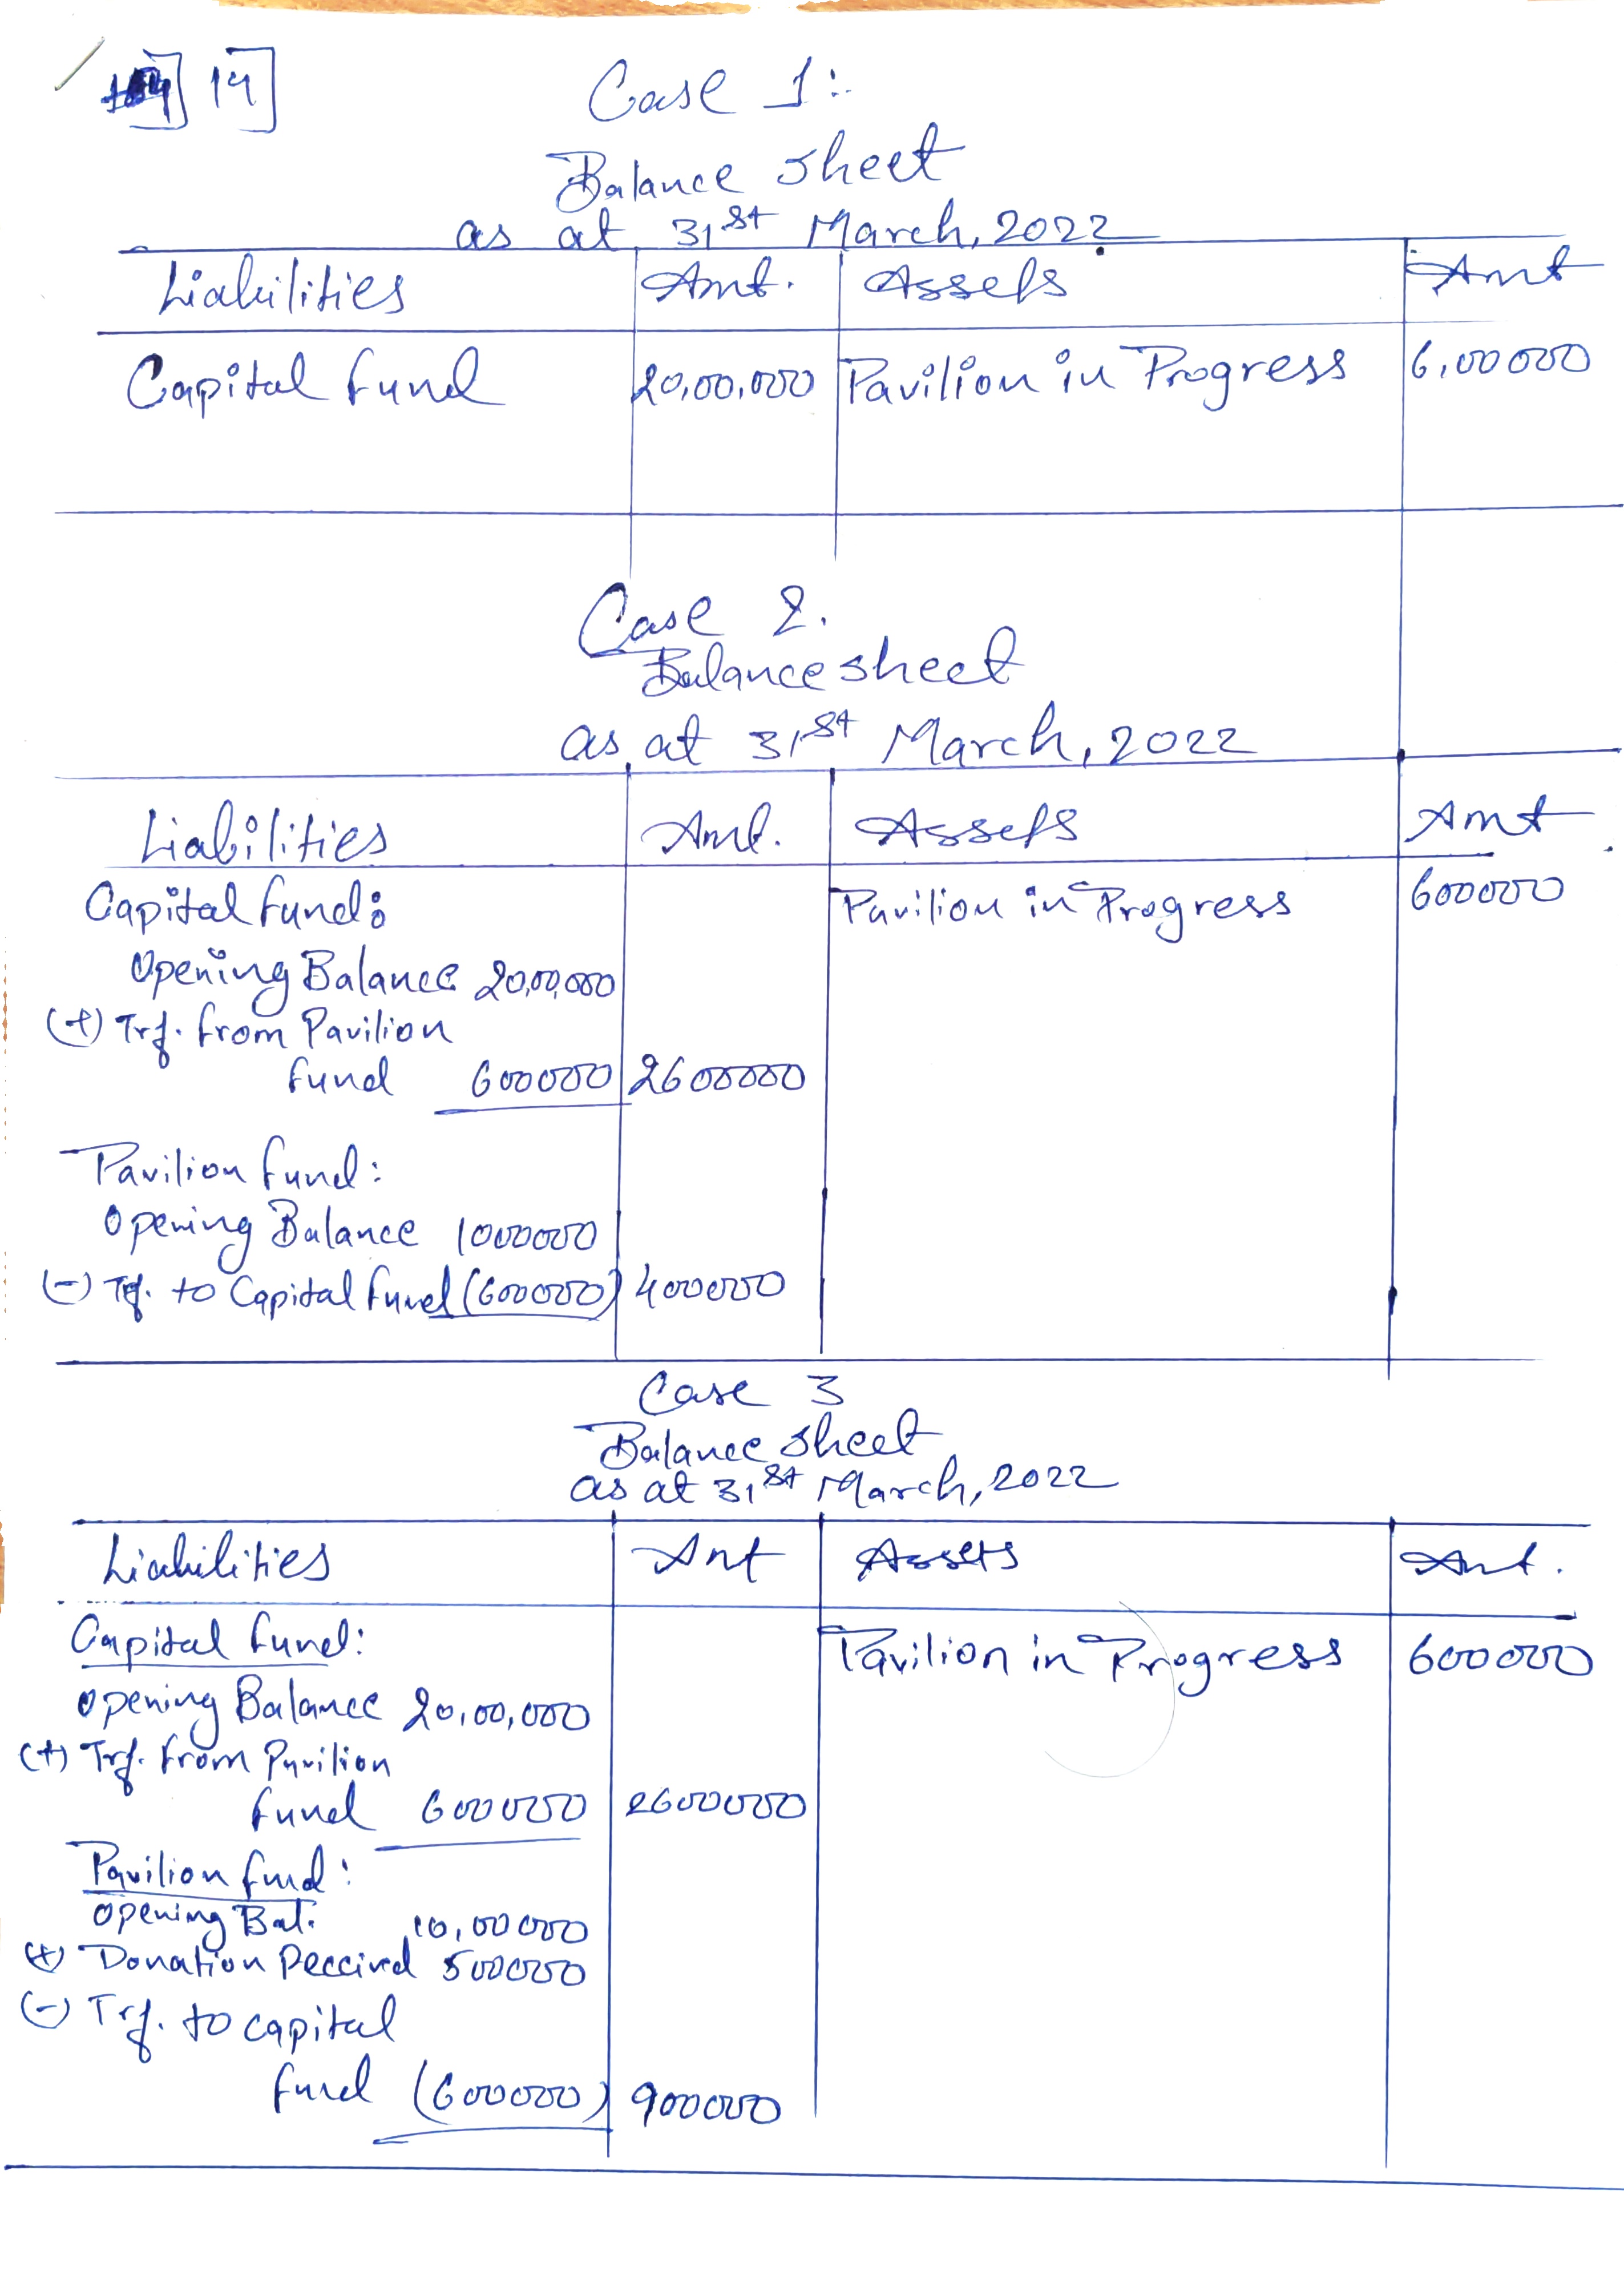 14]
Case 1:
Balance Sheet
as at 31st March, 2022
Liabilities Amt. Assets Amt
Capital fund 20,00,000 Pavilion in Progress 6,00000
Case 2.
Balance sheet
as at 31st March, 2022
Liabilities Amt. Assets Amt
Capital fund: Pavilion in Progress 600000
Opening Balance 20,00,000
(+) Trf. from Pavilion
fund 600000 2600000
Pavilion fund:
Opening Balance 1000000
(-) Trf. to Capital fund (600000) 400000
Case 3
Balance Sheet
as at 31st March, 2022
Liabilities Amt Assets Amt.
Capital fund: Pavilion in Progress 600000
Opening Balance 20,00,000
(+) Trf. from Pavilion
fund 600000 2600000
Pavilion fund:
Opening Bal. 10,00000
(+) Donation Received 500000
(-) Trf. to capital
fund (600000) 900000